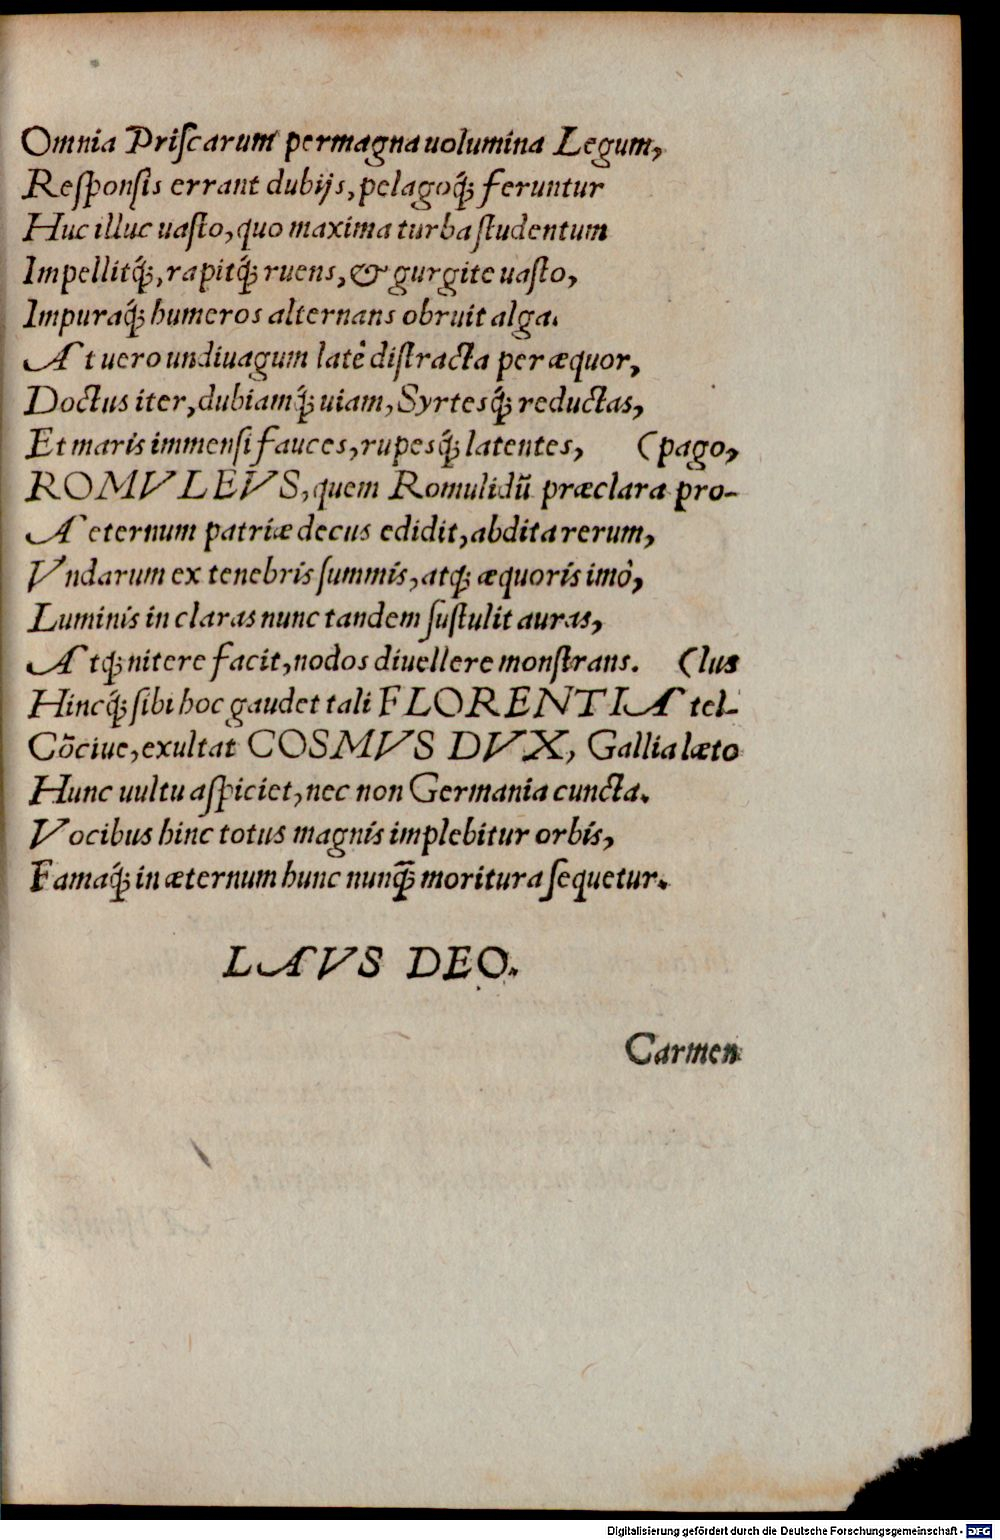 Omnia Priſcarum permagna uolumina Legum,
Reſponſis errant dubijs, pelagoq́ꝫ feruntur
Huc illuc uaſto, quo maxima turba ſtudentum
Impellitq́ꝫ, rapitq́ꝫ ruens, & gurgite uaſto,
Impuraq́ꝫ humeros alternans obruit alga.
At uero undiuagum latè diſtracta per æquor,
Doctus iter, dubiamq́ꝫ uiam, Syrtesq́ꝫ reductas,
Et maris immenſi fauces, rupesq́ꝫ latentes, (pago,
ROMVLEVS, quem Romulidũ præclara pro-
Aeternum patriæ decus edidit, abdita rerum,
Vndarum ex tenebris ſummis, atqꝫ æquoris imò,
Luminis in claras nunc tandem ſuſtulit auras,
Atqꝫ nitere facit, nodos diuellere monſtrans. (lus
Hincq́ꝫ ſibi hoc gaudet tali FLORENTIA tel-
Cõciue, exultat COSMVS DVX, Gallia læto
Hunc uultu aſpiciet, nec non Germania cuncta.
Vocibus hinc totus magnis implebitur orbis,
Famaq́ꝫ in æternum hunc nunq̃ꝫ moritura ſequetur.
LAVS DEO.
Carmen
Digitalisierung gefördert durch die Deutsche Forschungsgemeinschaft - DFG